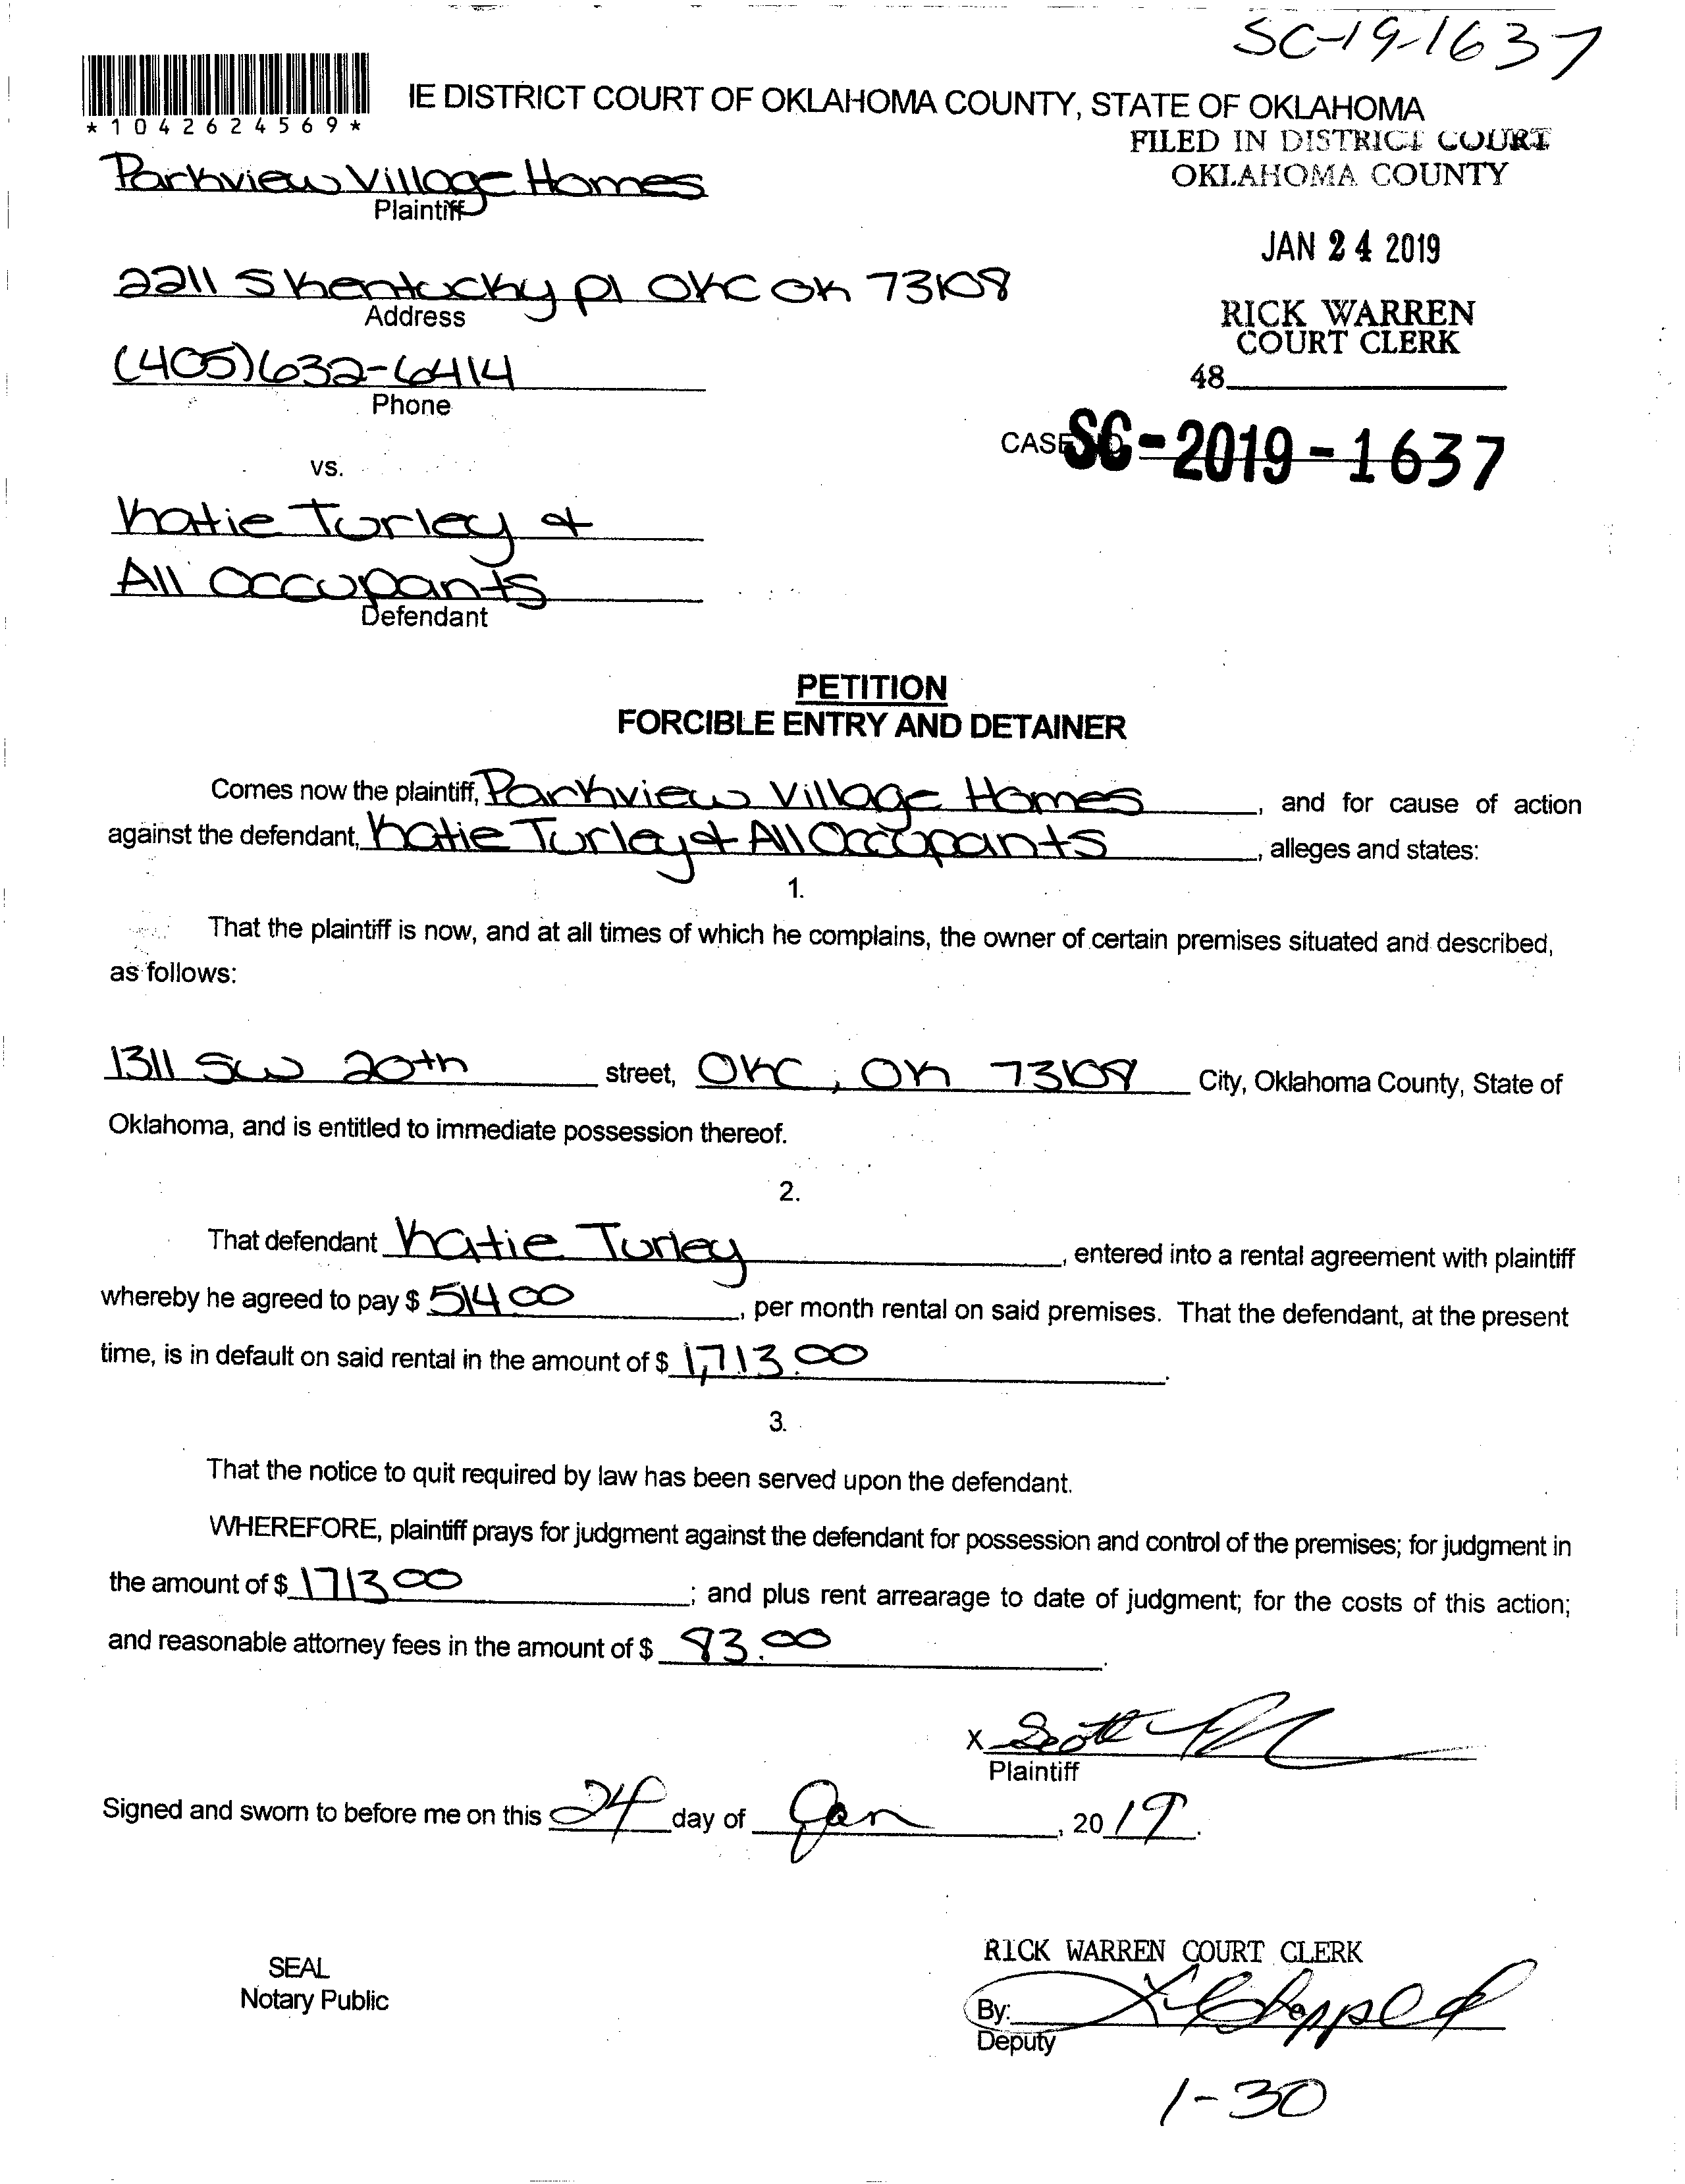 SC-19-1637
IE DISTRICT COURT OF OKLAHOMA COUNTY, STATE OF OKLAHOMA
*1042624569*
FILED IN DISTRICT COURT
OKLAHOMA COUNTY
Parkview Village Homes
Plaintiff
JAN 24 2019
2211 S Kentucky Pl OKC OK 73108
Address
RICK WARREN
COURT CLERK
(405)632-6414
Phone
48
CASE SC-2019-1637
vs.
Katie Turley &
All Occupants
Defendant
PETITION
FORCIBLE ENTRY AND DETAINER
Comes now the plaintiff, Parkview Village Homes, and for cause of action
against the defendant, Katie Turley & All Occupants, alleges and states:
1.
That the plaintiff is now, and at all times of which he complains, the owner of certain premises situated and described,
as follows:
1311 SW 20th street, OKC, OK 73108 City, Oklahoma County, State of
Oklahoma, and is entitled to immediate possession thereof.
2.
That defendant Katie Turley, entered into a rental agreement with plaintiff
whereby he agreed to pay $ 514 00, per month rental on said premises. That the defendant, at the present
time, is in default on said rental in the amount of $ 1,713.00.
3.
That the notice to quit required by law has been served upon the defendant.
WHEREFORE, plaintiff prays for judgment against the defendant for possession and control of the premises; for judgment in
the amount of $ 1713 00; and plus rent arrearage to date of judgment; for the costs of this action;
and reasonable attorney fees in the amount of $ 83.00.
X Scott
Plaintiff
Signed and sworn to before me on this 24 day of Jan, 2019.
SEAL
Notary Public
RICK WARREN COURT CLERK
By:
Deputy
1-30